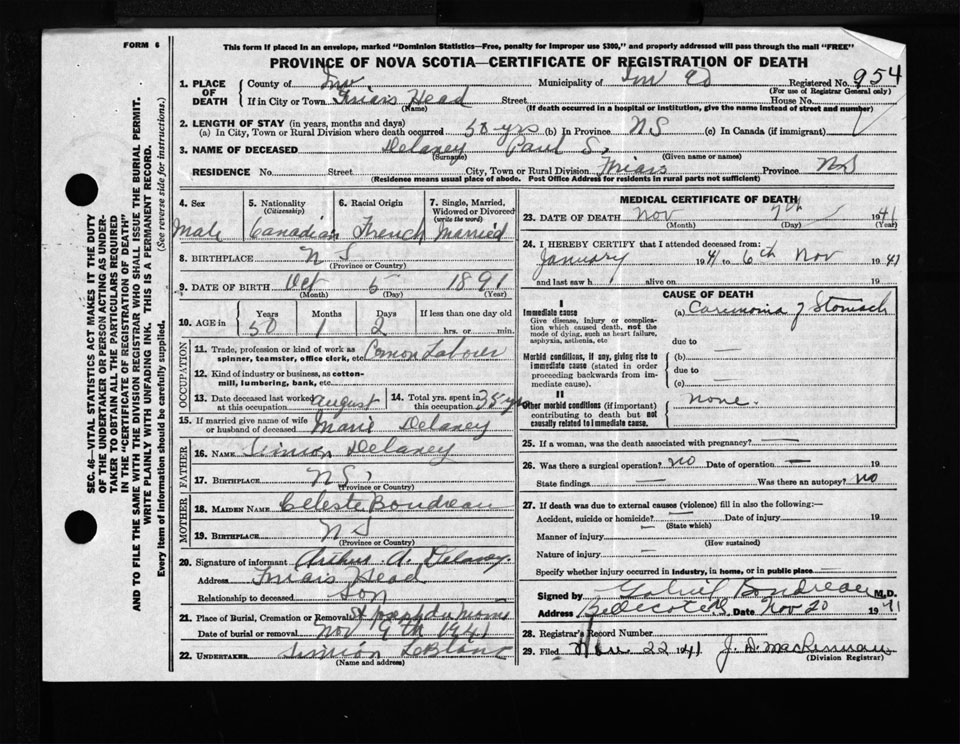 FORM 6
This form if placed in an envelope, marked "Dominion Statistics—Free, penalty for improper use $300," and properly addressed will pass through the mail "FREE"
PROVINCE OF NOVA SCOTIA—CERTIFICATE OF REGISTRATION OF DEATH
1. PLACE OF DEATH County of Inv Municipality of Inv Registered No. 954
(For use of Registrar General only)
If in City or Town Friars Head Street House No.
(Name) (If death occurred in a hospital or institution, give the name instead of street and number)
2. LENGTH OF STAY (in years, months and days)
(a) In City, Town or Rural Division where death occurred 50 yrs (b) In Province NS (c) In Canada (if immigrant)
3. NAME OF DECEASED Delaney Paul S.
(Surname) (Given name or names)
RESIDENCE No. Street City, Town or Rural Division Friars Province NS
(Residence means usual place of abode. Post Office Address for residents in rural parts not sufficient)
4. Sex Male
5. Nationality (Citizenship) Canadian
6. Racial Origin French
7. Single, Married, Widowed or Divorced (write the word) Married
8. BIRTHPLACE N S
(Province or Country)
9. DATE OF BIRTH Oct 5 1891
(Month) (Day) (Year)
10. AGE in Years Months Days If less than one day old
50 1 2 hrs. or min.
OCCUPATION
11. Trade, profession or kind of work as spinner, teamster, office clerk, etc. Comon Laborer
12. Kind of industry or business, as cotton-mill, lumbering, bank, etc.
13. Date deceased last worked at this occupation august
14. Total yrs. spent in this occupation 35 yrs
15. If married give name of wife or husband of deceased Marie Delaney
FATHER
16. NAME Simion Delaney
17. BIRTHPLACE N S,
(Province or Country)
MOTHER
18. MAIDEN NAME Celeste Boudreau
19. BIRTHPLACE N S
(Province or Country)
20. Signature of informant Arthur A. Delaney
Address Friars Head
Relationship to deceased Son
21. Place of Burial, Cremation or Removal St Joseph du Moine
Date of burial or removal Nov 9th 1941
22. UNDERTAKER Simion LeBlanc
(Name and address)
MEDICAL CERTIFICATE OF DEATH
23. DATE OF DEATH Nov 7th 1941
(Month) (Day) (Year)
24. I HEREBY CERTIFY that I attended deceased from:
January 1941 to 6th Nov 1941
and last saw h alive on 19
CAUSE OF DEATH
I
Immediate cause
Give disease, injury or complication which caused death, not the mode of dying, such as heart failure, asphyxia, asthenia, etc
(a) Carcinoma of Stomach
due to
Morbid conditions, if any, giving rise to immediate cause (stated in order proceeding backwards from immediate cause).
(b) —
due to
(c) —
II
Other morbid conditions (if important) contributing to death but not causally related to immediate cause.
none.
25. If a woman, was the death associated with pregnancy? —
26. Was there a surgical operation? no Date of operation — 19
State findings — Was there an autopsy? no
27. If death was due to external causes (violence) fill in also the following:—
Accident, suicide or homicide? — Date of injury 19
(State which)
Manner of injury —
(How sustained)
Nature of injury —
Specify whether injury occurred in industry, in home, or in public place
Signed by Gabriel Boudreau M.D.
Address Date Nov 20 1941
28. Registrar's Record Number
29. Filed 22 1941 J. D. MacKinnon
(Division Registrar)
SEC. 46—VITAL STATISTICS ACT MAKES IT THE DUTY
OF THE UNDERTAKER OR PERSON ACTING AS UNDER-
TAKER TO OBTAIN ALL THE PARTICULARS REQUIRED
IN THE "CERTIFICATE OF REGISTRATION OF DEATH"
AND TO FILE THE SAME WITH THE DIVISION REGISTRAR WHO SHALL ISSUE THE BURIAL PERMIT.
WRITE PLAINLY WITH UNFADING INK. THIS IS A PERMANENT RECORD.
Every item of information should be carefully supplied. (See reverse side for instructions.)